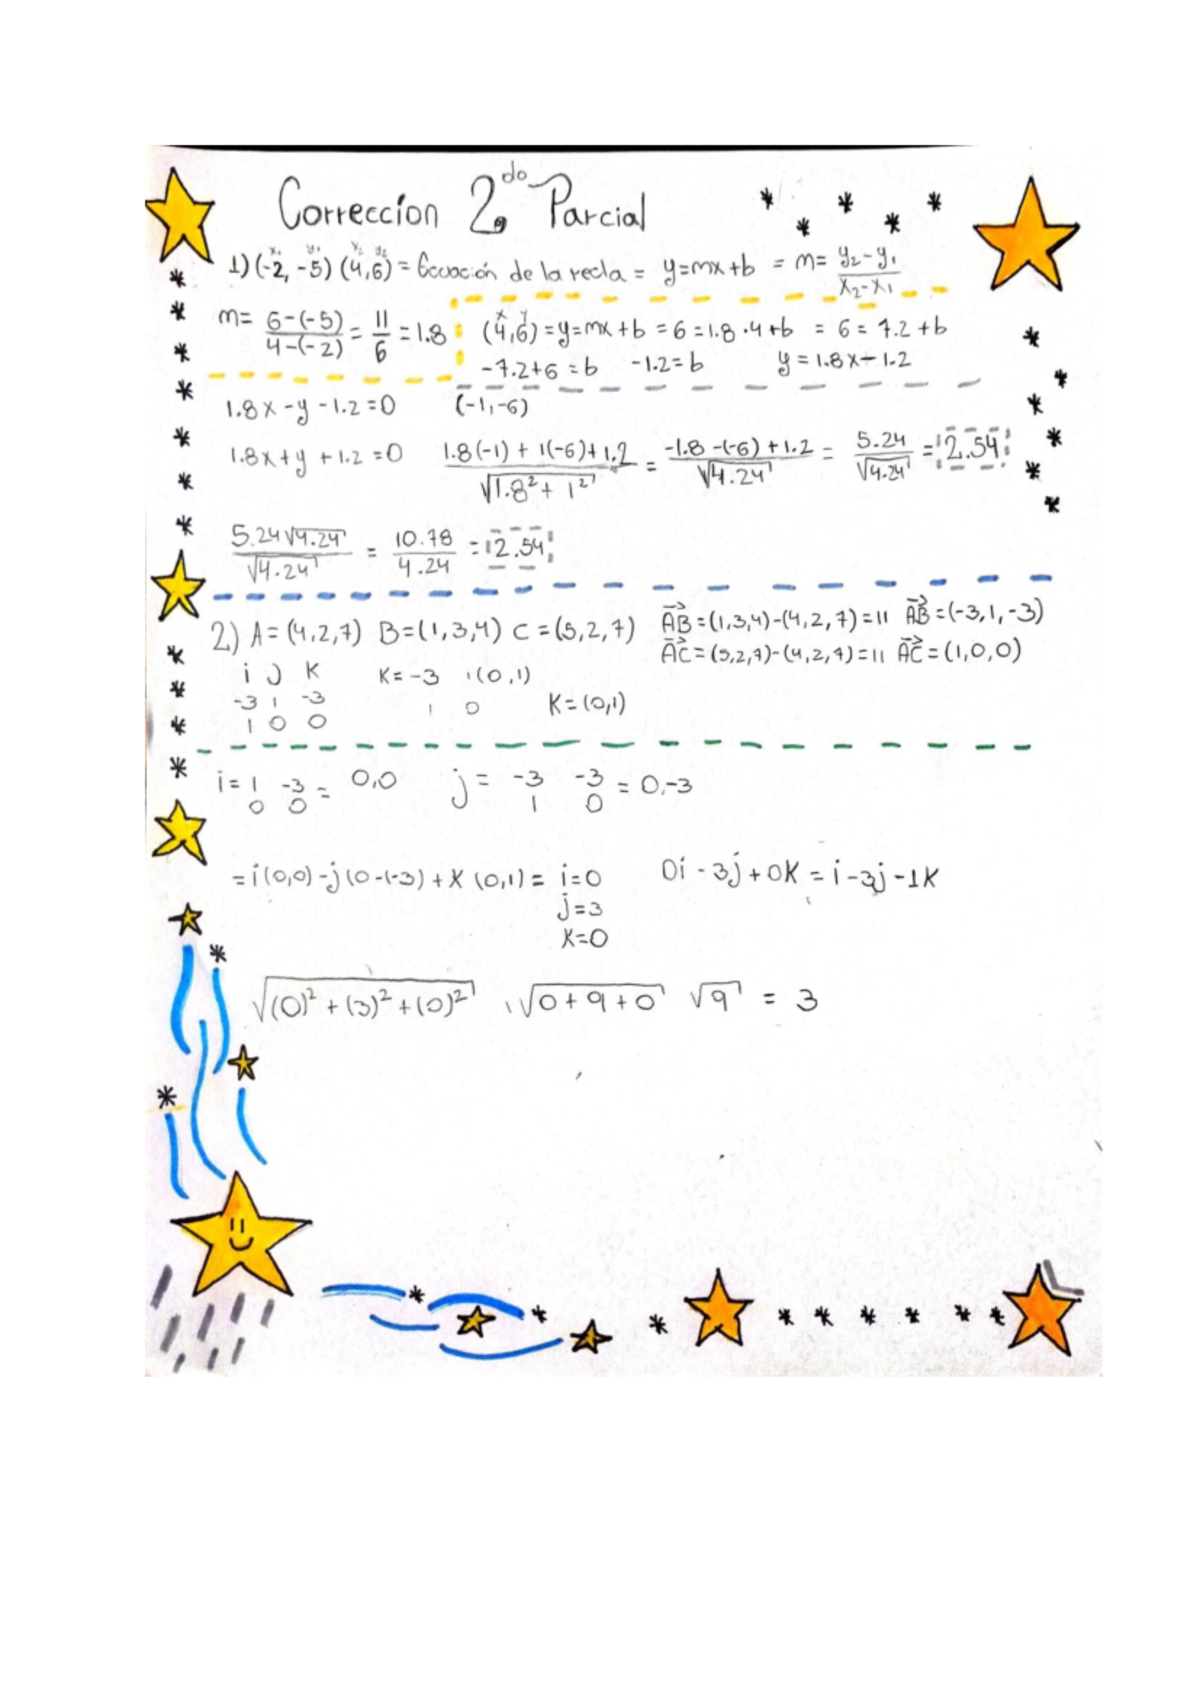 Correccion 2.do Parcial
x₁ y₁ x₂ y₂
1) (-2, -5) (4,6) = Ecuación de la recta = y=mx+b = m= y₂-y₁ / x₂-x₁
m= 6-(-5) / 4-(-2) = 11/6 = 1.8
x y
(4,6) = y=mx+b = 6=1.8·4+b = 6=7.2+b
-7.2+6 = b -1.2=b y=1.8x-1.2
1.8x-y-1.2=0 (-1,-6)
1.8x+y+1.2=0 1.8(-1) + 1(-6)+1.2 / √1.8²+1² = -1.8-(-6)+1.2 / √4.24 = 5.24 / √4.24 = 2.54
5.24√4.24 / √4.24 = 10.78 / 4.24 = 2.54
2) A=(4,2,7) B=(1,3,4) C=(5,2,7) AB=(1,3,4)-(4,2,7)=11 AB=(-3,1,-3)
AC=(5,2,7)-(4,2,7)=11 AC=(1,0,0)
i j K K=-3 1(0,1)
-3 1 -3 1 0 K=(0,1)
1 0 0
i= 1 -3 = 0,0 j= -3 -3 = 0,-3
0 0 1 0
=i(0,0)-j(0-(-3)+K(0,1)= i=0 0i-3j+0K=i-3j-1K
j=3
K=0
√(0)²+(3)²+(0)² √0+9+0 √9 = 3